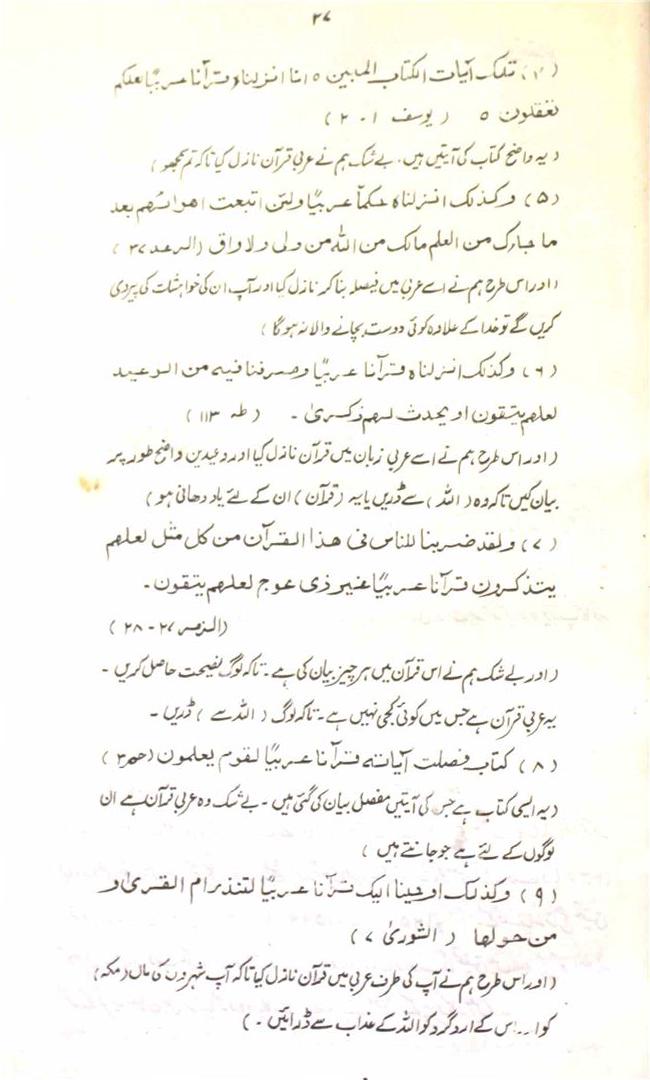 ۲۷
(۴) تلک آیات الکتاب المبین ٥ انا انزلناہ قرآنا عربیًا لعلکم
تعقلون ٥ (یوسف ۱-۲)
(یہ واضح کتاب کی آیتیں ہیں۔ بے شک ہم نے عربی قرآن نازل کیا تاکہ تم سمجھو)
(۵) وکذلک انزلناہ حکماً عربیًا ولئن اتبعت اھوائھم بعد
ما جاءک من العلم مالک من اللہ من ولی ولا واق (الرعد ۳۷)
(اور اس طرح ہم نے اسے عربی میں فیصلہ بنا کر نازل کیا اور آپ ان کی خواہشات کی پیروی
کریں گے تو خدا کے علاوہ کوئی دوست بچانے والا نہ ہو گا)
(۶) وکذلک انزلناہ قرآنا عربیًا وصرفنا فیہ من الوعید
لعلھم یتقون او یحدث لھم ذکریٰ ۔ (طہ ۱۱۳)
(اور اس طرح ہم نے اسے عربی زبان میں قرآن نازل کیا اور وعیدیں واضح طور پر
بیان کیں تاکہ وہ (اللہ) سے ڈریں یا یہ (قرآن) ان کے لئے یاد دھانی ہو)
(۷) ولقد ضربنا للناس فی ھذا القرآن من کل مثل لعلھم
یتذکرون قرآنا عربیًا غیر ذی عوج لعلھم یتقون۔
(الزمر ۲۷-۲۸)
(اور بے شک ہم نے اس قرآن میں ہر چیز بیان کی ہے۔ تاکہ لوگ نصیحت حاصل کریں۔
یہ عربی قرآن ہے جس میں کوئی کجی نہیں ہے۔ تاکہ لوگ (اللہ سے) ڈریں ۔
(۸) کتاب فصلت آیاتہ قرآنا عربیًا لقوم یعلمون (حم ۳)
(یہ ایسی کتاب ہے جس کی آیتیں مفصل بیان کی گئی ہیں۔ بے شک وہ عربی قرآن ہے ان
لوگوں کے لئے ہے جو جانتے ہیں)
(۹) وکذلک اوحینا الیک قرآنا عربیًا لتنذر ام القریٰ و
من حولھا (الشوریٰ ۷)
(اور اس طرح ہم نے آپ کی طرف عربی میں قرآن نازل کیا تاکہ آپ شہروں کی ماں (مکہ)
کو اور اس کے ارد گرد کو اللہ کے عذاب سے ڈرائیں ۔)